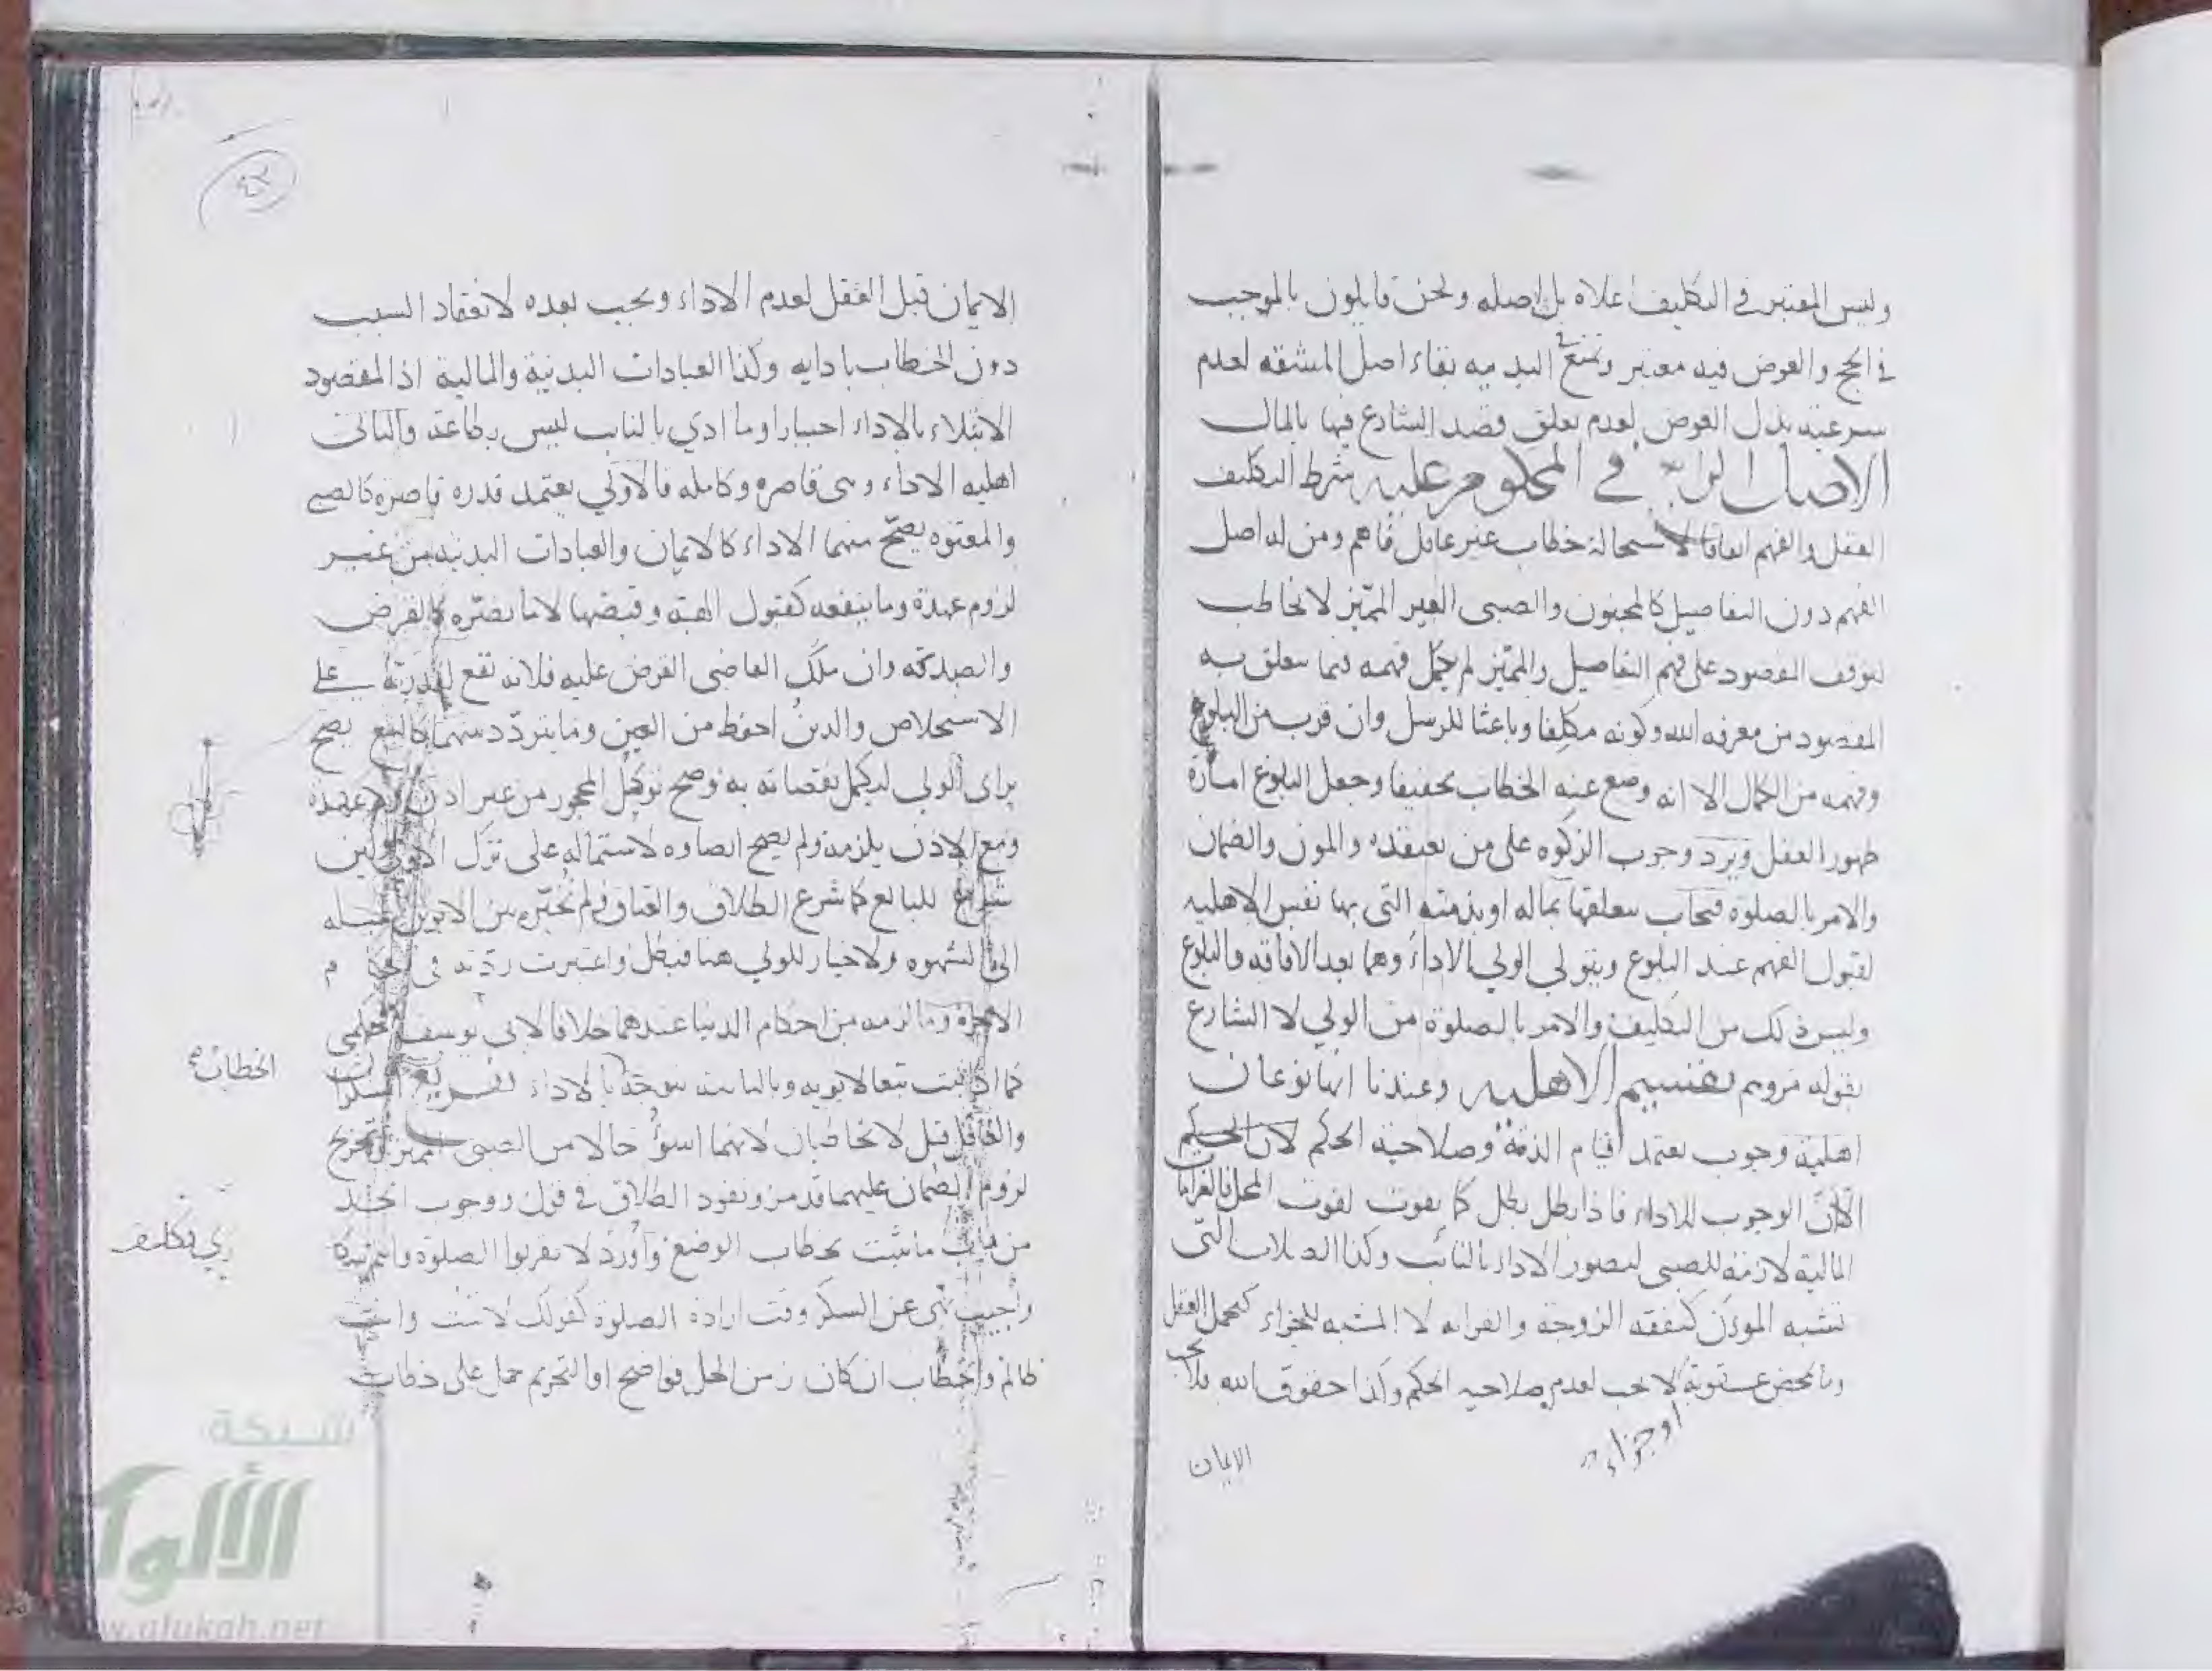 وليس المعتبر في التكليف اعلاه بل اصله ونحن قايلون بالموجب
في الحج والعوض فيه معتبر وتمنع البدنيه بقاء اصل المشقه لعدم
شرعية بذل العوض لعدم تعلق قصد الشارع فيها بالمال
الاصل الرابع في المحكوم عليه شرط التكليف
العقل والفهم اتفاقا لاستحالة خطاب غير عاقل فاهم ومن له اصل
الفهم دون التفاصيل كالمجنون والصبي الغير المميز لا يخاطب
لتوقف المقصود على فهم التفاصيل والمميز لم يكمل فهمه فيما يتعلق به
المقصود من معرفه الله وكونه مكلفا وباعثا للرسل وان قرب من البلوغ
وفهمه من الكمال الا انه وضع عنه الخطاب تخفيفا وجعل البلوغ امارة
ظهور العقل ويرد وجوب الزكوه على من يعتقده والمون والضمان
والامر بالصلوة فيجاب بتعلقها بماله او بذمته التي بها نفس الاهليه
لقبول الفهم عند البلوغ ويتولى الولي الاداء وهما بعد الافاقه والبلوغ
وليس ذلك من التكليف والامر بالصلوة من الولي لا الشارع
بقوله مروهم تقسيم الاهليه وعندنا انها نوعان
اهلية وجوب يعتمد قيام الذمة وصلاحية الحكم لان الحكم
الا ان الوجوب للاداء فاذا بطل بطل كما يفوت لفوت المحل فالغرامات
المالية لازمة للصبي لتصور الاداء بالنائب وكذا الصلات التي
تشبه المون كنفقه الزوجة والقرابه لا المشبه للجزاء كتحمل العقل
وما تمحض عقوبة لا يجب لعدم صلاحيه الحكم وكذا حقوق الله فلا يجب
او جزاء
الايمان
الايمان قبل العقل لعدم الاداء ويجب بعده لانعقاد السبب
دون الخطاب بادايه وكذا العبادات البدنية والمالية اذ المقصود
الابتلاء بالاداء اختيارا وما ادي بالنايب ليس بطاعة والثاني
اهليه الاداء وهي قاصره وكامله فالاولى يعتمد قدره قاصره كالصبي
والمعتوه يصح منهما الاداء كالايمان والعبادات البدنيه من غير
لزوم عهدة وما ينفعه كقبول الهبة وقبضها لا ما يضره كالقرض
والصدقه وان ملك القاضي القرض عليه فلانه يقع لقدرته على
الاستخلاص والدين احفظ من العين وما يتردد بينهما كالبيع يصح
براى الولي ليكمل نقصانه به وصح توكيل المحجور من غير اذن ولا عهدة
ومع الاذن يلزمه ولم يصح ايصاوه لاشتماله على ترك الاولى ولئن
شرع للبالغ كما شرع الطلاق والعتاق ولم نخيره بين الابوين لميله
الى الشهوه ولا خيار للولي هنا فبطل واعتبرت ردته في
الاخرة وما لزمه من احكام الدنيا عندهما خلافا لابي يوسف
كما اذا ثبت تبعا لابويه وبالثانية يتوجه الاداء تفريع السكران
والغافل قيل لا يخاطبان لانهما اسوؤ حالا من الصبي المميز وتخريج
لزوم الضمان عليهما قد مر ونفوذ الطلاق في قول ووجوب الحد
من باب ما ثبت بخطاب الوضع واورد لا تقربوا الصلوة وانتم سكارى
واجيب نهى عن السكر وقت ارادة الصلوة كقولك لا تمت وانت
ظالم والخطاب ان كان زمن الحل فواضح او التحريم حمل على خطاب
الخطاب
شبكة
الألوكة
www.alukah.net